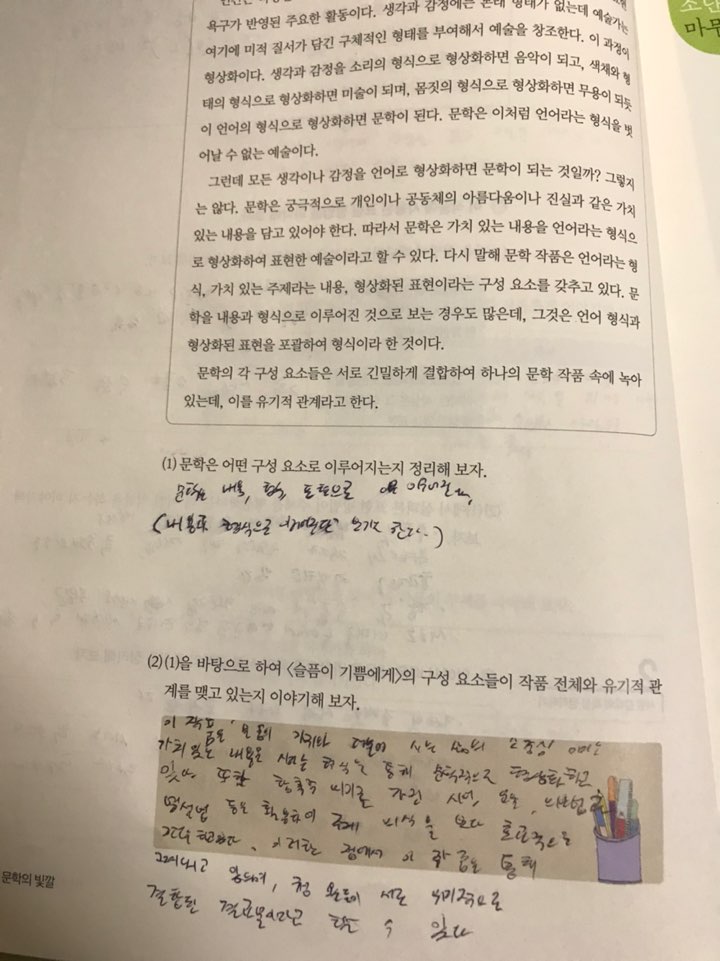 욕구가 반영된 주요한 활동이다. 생각과 감정에는 본래 형태가 없는데 예술가는
여기에 미적 질서가 담긴 구체적인 형태를 부여해서 예술을 창조한다. 이 과정이
형상화이다. 생각과 감정을 소리의 형식으로 형상화하면 음악이 되고, 색채와 형
태의 형식으로 형상화하면 미술이 되며, 몸짓의 형식으로 형상화하면 무용이 되듯
이 언어의 형식으로 형상화하면 문학이 된다. 문학은 이처럼 언어라는 형식을 벗
어날 수 없는 예술이다.
그런데 모든 생각이나 감정을 언어로 형상화하면 문학이 되는 것일까? 그렇지
는 않다. 문학은 궁극적으로 개인이나 공동체의 아름다움이나 진실과 같은 가치
있는 내용을 담고 있어야 한다. 따라서 문학은 가치 있는 내용을 언어라는 형식으
로 형상화하여 표현한 예술이라고 할 수 있다. 다시 말해 문학 작품은 언어라는 형
식, 가치 있는 주제라는 내용, 형상화된 표현이라는 구성 요소를 갖추고 있다. 문
학을 내용과 형식으로 이루어진 것으로 보는 경우도 많은데, 그것은 언어 형식과
형상화된 표현을 포괄하여 형식이라 한 것이다.
문학의 각 구성 요소들은 서로 긴밀하게 결합하여 하나의 문학 작품 속에 녹아
있는데, 이를 유기적 관계라고 한다.
(1) 문학은 어떤 구성 요소로 이루어지는지 정리해 보자.
문학은 내용, 형식, 표현으로 이루어진다.
(내용과 형식으로 보기도 한다.)
(2) (1)을 바탕으로 하여 〈슬픔이 기쁨에게〉의 구성 요소들이 작품 전체와 유기적 관
계를 맺고 있는지 이야기해 보자.
이 작품은 슬픔의 가치와 더불어 사는 삶의 소중성이라는
가치 있는 내용을 시라는 형식을 통해 문학적으로 형상화하고
있다. 또한 상징적 의미를 가진 시어,
역설법 등을 활용하여 주제 의식을 보다 효과적으로
이러한 점에서 이 작품은 통해
서로 유기적으로
결합된 결과물이라고 할 수 있다
문학의 빛깔